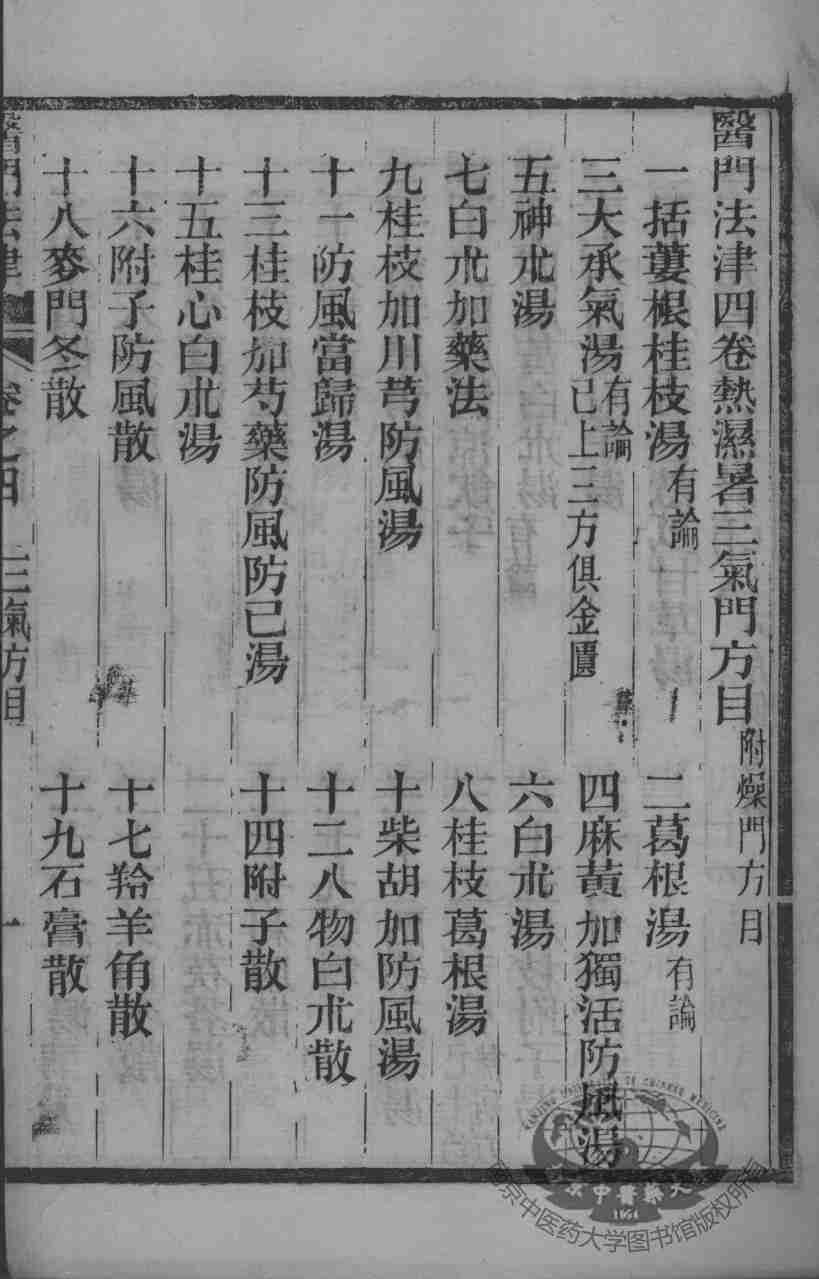 醫門法津四卷熱濕暑三氣門方目 附燥門方目
一括蔞根桂枝湯 有論 二葛根湯 有論
三大承氣湯 有論 已上三方俱金匱 四麻黃加獨活防風湯
五神朮湯 六白朮湯
七白朮加藥法 八桂枝葛根湯
九桂枝加川芎防風湯 十柴胡加防風湯
十一防風當歸湯 十二八物白朮散
十三桂枝加芍藥防風防已湯 十四附子散
十五桂心白朮湯
十六附子防風散 十七羚羊角散
十八麥門冬散 十九石膏散
醫門法律 卷之四 三氣方目 一
NANJING UNIVERSITY OF CHINESE MEDICINE
南京中醫藥大學
1954
南京中医药大学图书馆版权所有